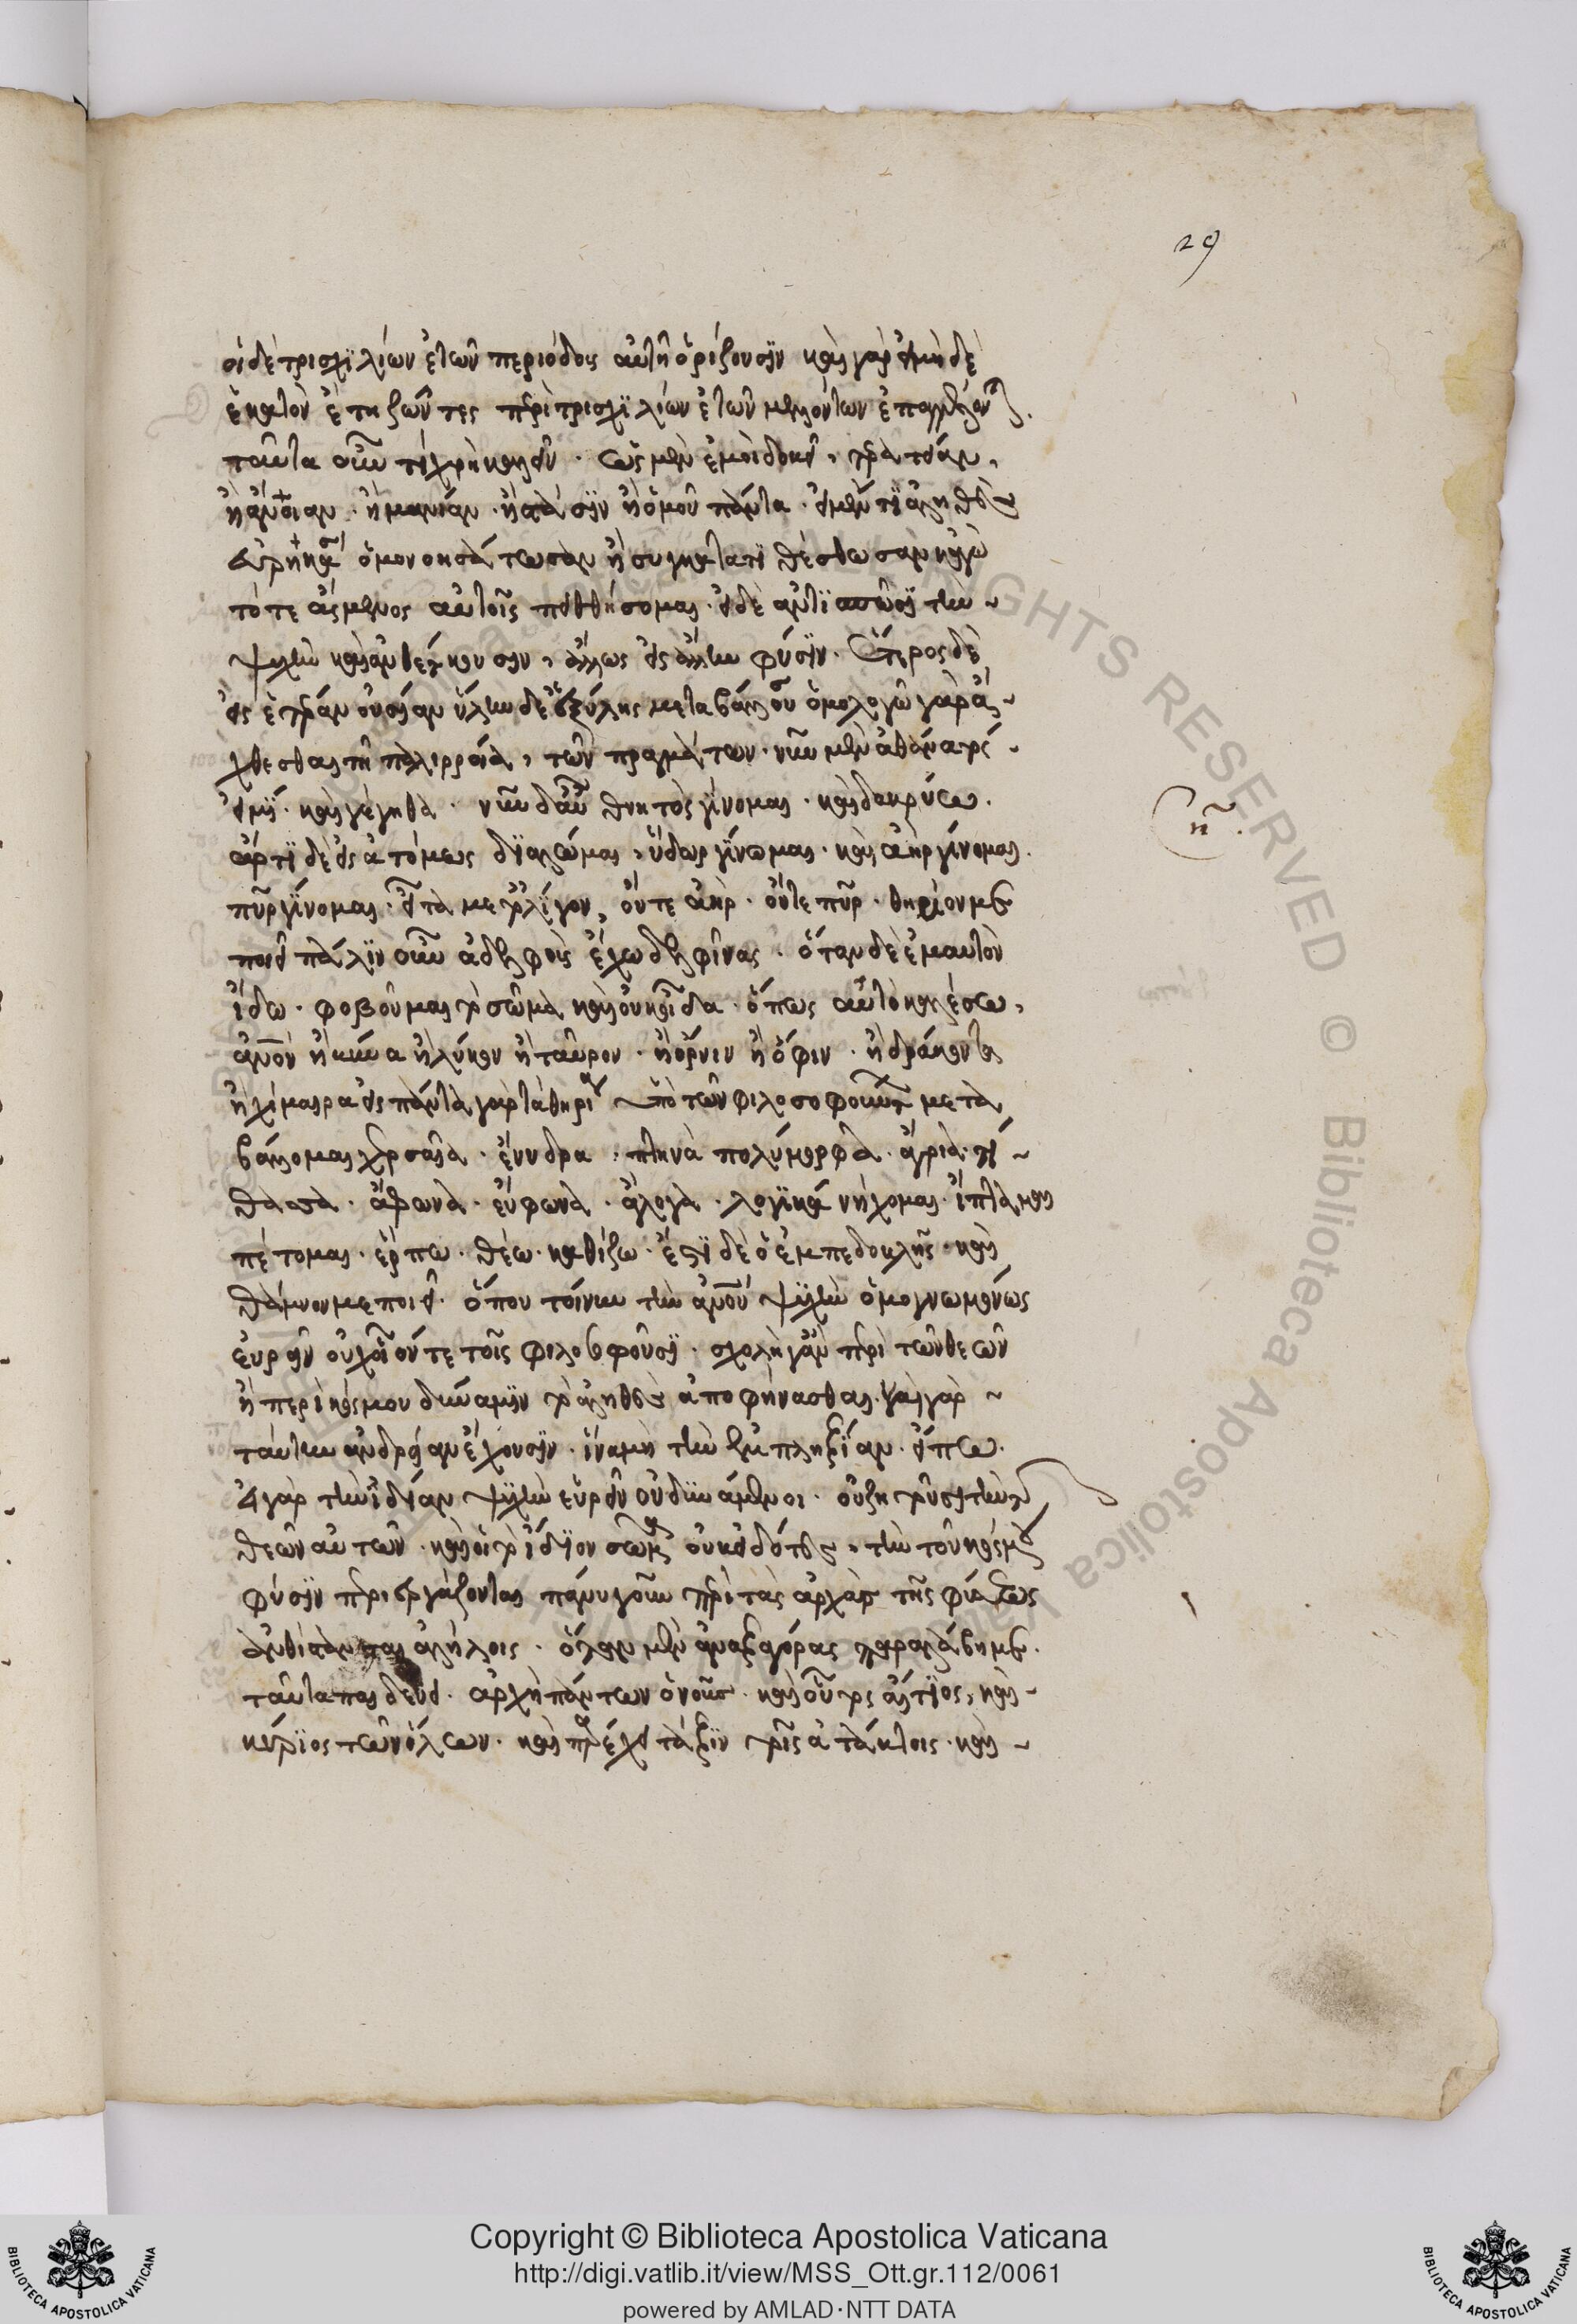 29
οἱ δὲ τρισχϊλίων ἐτῶν περιόδοις αὐτὴ ὁρίζουσϊν καὶ γὰρ οἱ μὴ δὲ
ἑκατὸν ἔτη ζῶντες περὶ τρισχϊλίων ἐτῶν μελλόντων ἐπαγγέλλον
ταῦτα οὖν τί χρὴ καλεῖν · ὡς μὲν ἐμοὶ δοκεῖ, τερατείαν,
ἢ ἄνοιαν · ἢ μανίαν · ἢ στάσϊν ἢ ὁμοῦ πάντα · εἰ μέν τϊ ἀληθὲς
εὑρήκασι ὁμονοησάτωσαν ἢ συγκατατϊθέσθωσαν κἀγὼ
τότε ἄσμενος αὐτοῖς πεισθήσομαι · εἰ δὲ ἀντϊσπῶσϊ τὴν
ψυχὴν καὶ ἀνθέλκουσιν, ἄλλος εἰς ἄλλην φύσϊν · ἕτερος δὲ
εἰς ἑτέραν οὐσίαν ὕλην δὲ ἐξ ὕλης μεταβάλλου ὁμολογῶ γὰρ ἄ
χθεσθαι τῇ παλιρροία, τῶν πραγμάτων · νῦν μὲν ἀθάνατος
εἰμϊ · καὶ γέγηθα · νῦν δ' αὖ θνητὸς γίνομαι · καὶ δακρύω.
ἄρτϊ δὲ εἰς ἀτόμους δϊαλύομαι, ὕδωρ γίνομαι · καὶ ἀὴρ γίνομαι.
πῦρ γίνομαι · εἶτα μετ' ὀλίγον, οὔτε ἀὴρ · οὔτε πῦρ · θηρίον με
ποιεῖ πάλϊν οὖν ἀδελφοὺς ἔχω δελφῖνας · ὅταν δὲ ἐμαυτὸν
ἴδω · φοβοῦμαι τὸ σῶμα καὶ οὐκ οἶδα · ὅπως αὐτὸ καλέσω,
ἄνον ἢ κύνα ἢ λύκον ἢ ταῦρον · ἢ ὄρνιν ἢ ὄφιν · ἢ δράκοντα
ἢ χίμαιρα εἰς πάντα γὰρ τὰ θηρία ὑπὸ τῶν φιλοσοφούντων μετα
βάλλομαι χερσαῖα · ἔνυδρα · πτηνὰ πολύμορφα · ἄγρια · τι
θασσὰ · ἄφωνα · εὔφωνα · ἄλογα · λογϊκά νήχομαι · ἵπταμαι
πέτομαι · ἕρπω · θέω · καθίζω · ἔστϊ δὲ ὁ ἐμπεδοκλῆς · καὶ
θάμνον με ποιεῖ · ὅπου τοίνυν τὴν ἀνοῦ ψυχὴν ὁμογνωμόνως
εὑρεῖν οὐχ οἷόν τε τοῖς φιλοσοφοῦσϊ · σχολῆ γ' ἂν περὶ τῶν θεῶν
ἢ περὶ κόσμου δύναμϊν τὸ ἀληθὲς ἀποφήνασθαι · καὶ γὰρ
ταύτην ἀνδρείαν ἔχουσϊν · ἵνα μὴ τὴν ἐμπληξίαν · εἴπω.
οἱ γὰρ τὴν ἰδϊαν ψυχὴν εὑρεῖν οὐ δϋνάμενοι · οὐ ζητοῦσι τὴν τῶν
θεῶν αὐτῶν · καὶ οἱ τὸ ἴδϊον σῶμα οὐκ εἰδότες, τὴν τοῦ κόσμου
φύσϊν περιεργάζονται πάνυ γοῦν περὶ τὰς ἀρχὰς τῆς φύσεως
ἀνθίστανται ἀλλήλοις · ὅταν μὲν ἀναξαγόρας παραλάβη με.
ταῦτα παιδεύει · ἀρχὴ πάντων ὁ νοῦς · καὶ οὗτος αἴτϊος, καὶ
κύρϊος τῶν ὅλων · καὶ παρέχει τάξϊν τοῖς ἀτάκτοις · καὶ
Copyright © Biblioteca Apostolica Vaticana
http://digi.vatlib.it/view/MSS_Ott.gr.112/0061
powered by AMLAD·NTT DATA